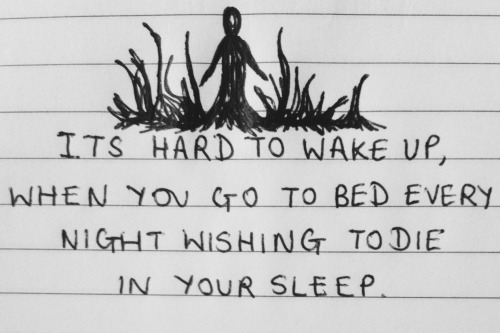 ITS HARD TO WAKE UP,
WHEN YOU GO TO BED EVERY
NIGHT WISHING TO DIE
IN YOUR SLEEP.